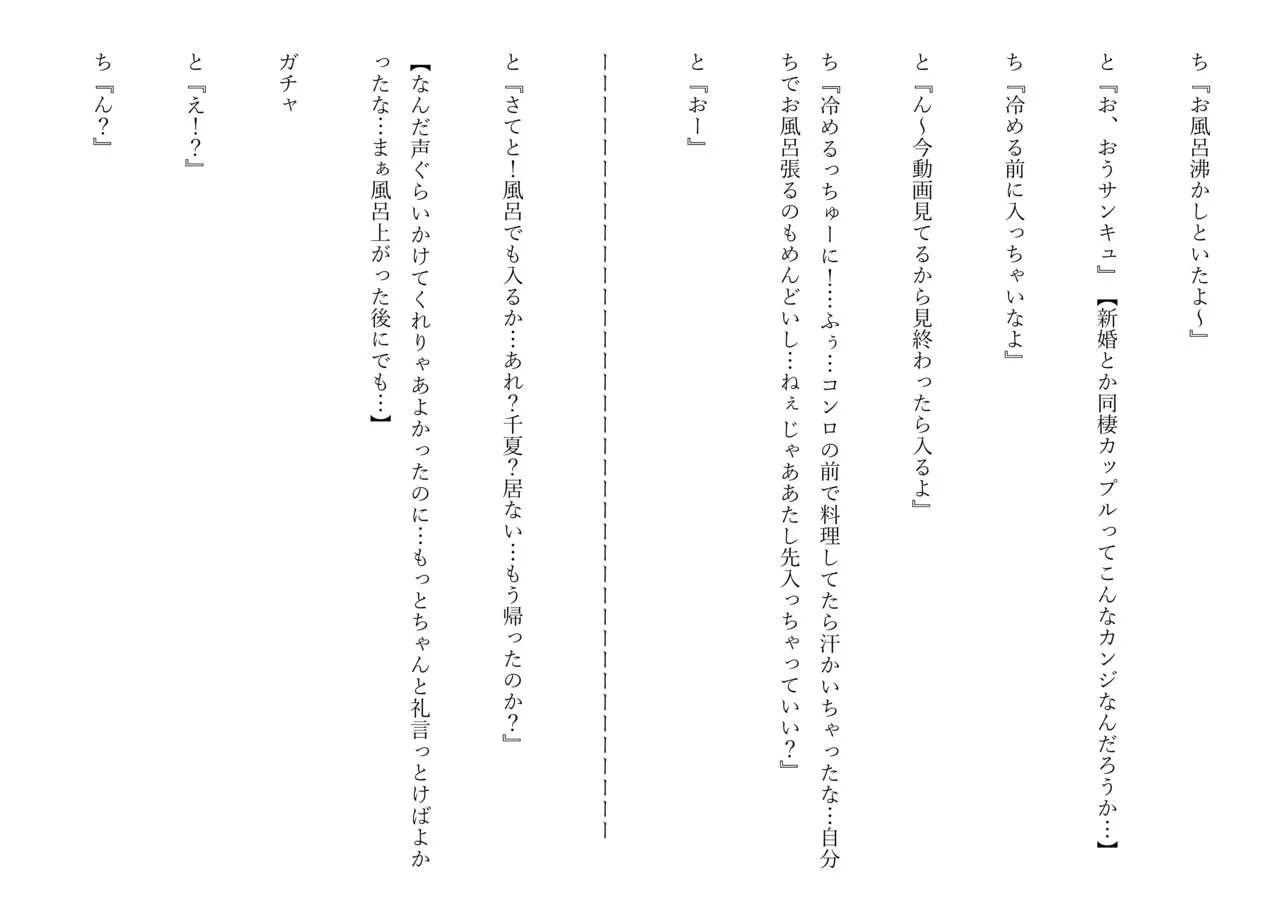 ち『お風呂沸かしといたよ～』
と『お、おうサンキュ』【新婚とか同棲カップルってこんなカンジなんだろうか…】
ち『冷める前に入っちゃいなよ』
と『ん～今動画見てるから見終わったら入るよ』
ち『冷めるっちゅーに！…ふぅ…コンロの前で料理してたら汗かいちゃったな…自分
ちでお風呂張るのもめんどいし…ねぇじゃああたし先入っちゃっていい？』
と『おー』
ーーーーーーーーーーーーーーーーーーーーーーーーーーーーーーーーーーーーー
と『さてと！風呂でも入るか…あれ？千夏？居ない…もう帰ったのか？』
【なんだ声ぐらいかけてくれりゃあよかったのに…もっとちゃんと礼言っとけばよか
ったな…まぁ風呂上がった後にでも…】
ガチャ
と『え！？』
ち『ん？』